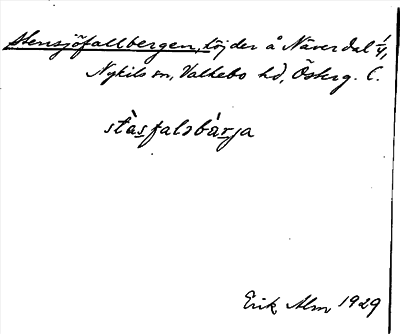 Stensjöfallbergen, höjder å Näverdal 1/1,
Nykils sn, Valkebo hd, Österg. C.
stàsfalsbárja
Erik Alm 1929